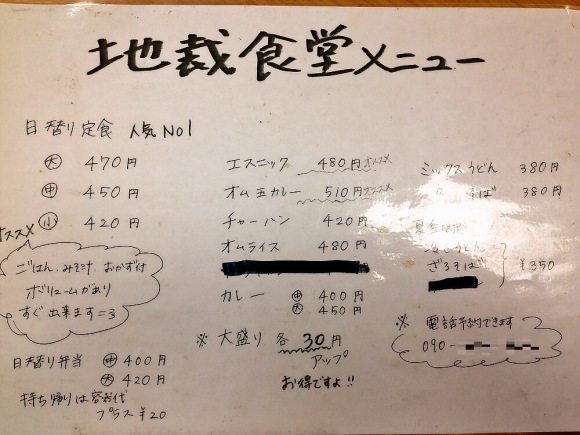 地裁食堂メニュー
日替り定食 人気No1
大 470円
中 450円
小 420円
オススメ
ごはん、みそ汁、おかず付
ボリュームがあり
すぐ出来ます=3
日替り弁当 中 400円
大 420円
持ち帰りは容器代
プラス¥20
エスニック 480円 オススメ
オム玉カレー 510円 オススメ
チャーハン 420円
オムライス 480円
カレー 中 400円
大 450円
※ 大盛り 各 30円
アップ
お得ですよ!!
ミックスうどん 380円
そば 380円
夏季限定
うどん
ざるそば
¥350
※ 電話予約できます
090-